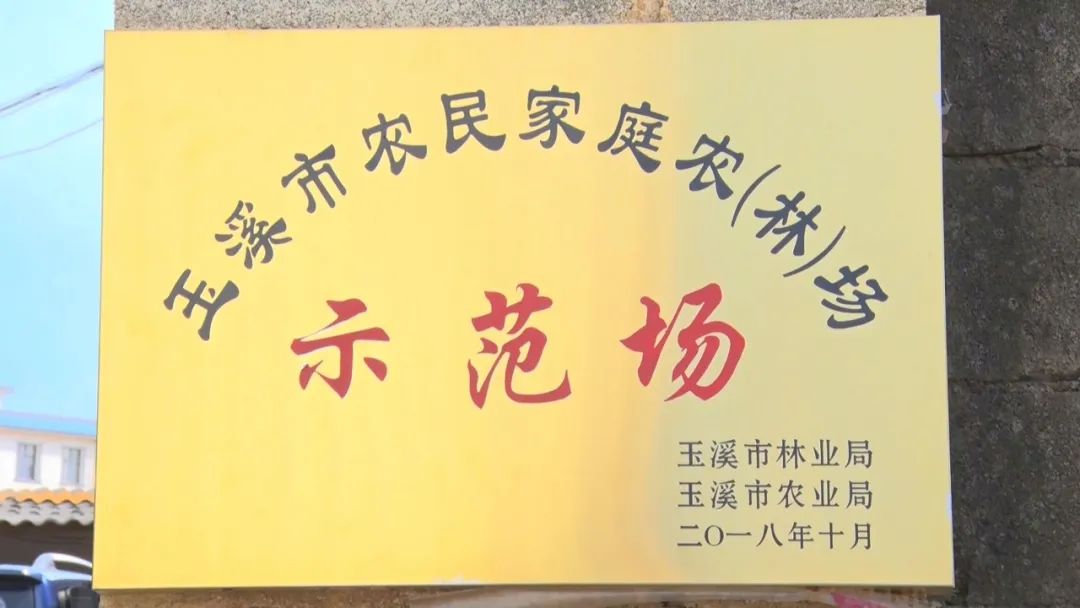 玉溪市农民家庭农(林)场
示范场
玉溪市林业局
玉溪市农业局
二〇一八年十月